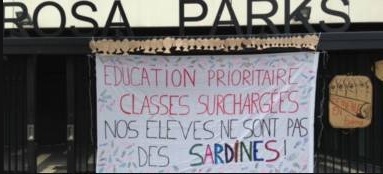 ROSA PARKS
EDUCATION PRIORITAIRE
CLASSES SURCHARGÉES
NOS ÉLEVES NE SONT PAS
DES SARDINES!